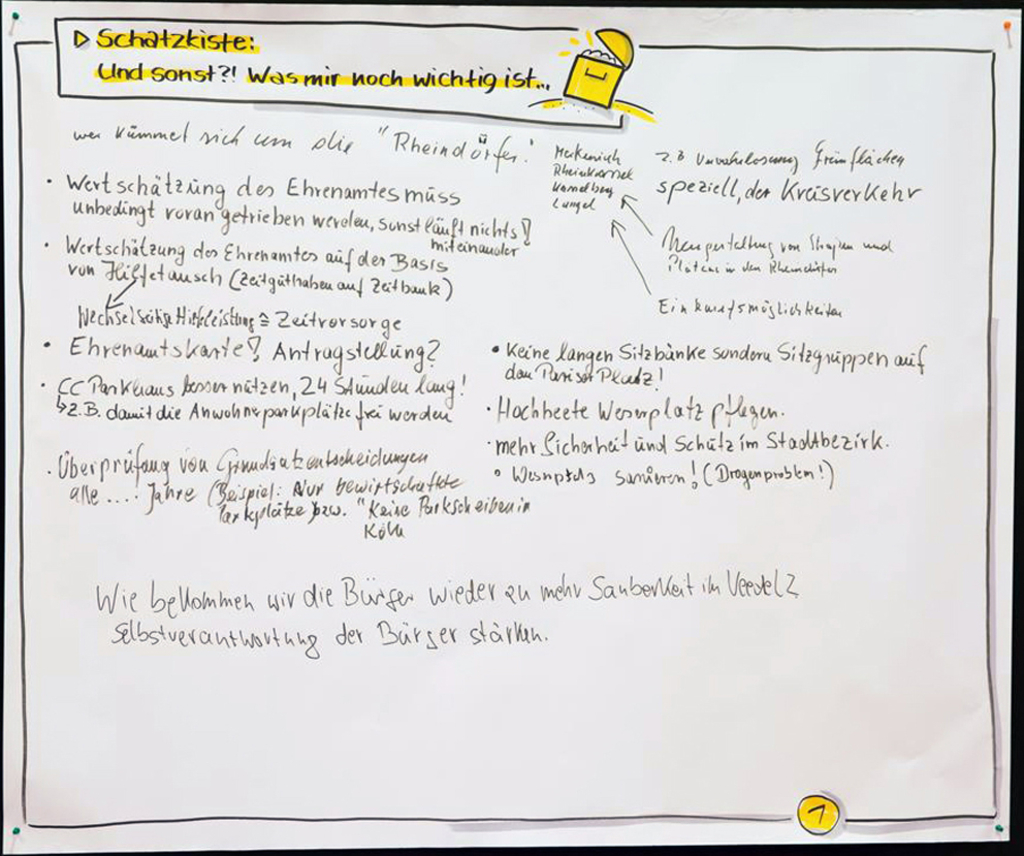 Schatzkiste:
Und sonst?! Was mir noch wichtig ist...
wer kümmet sich um die "Rheindörfer."
Merkenich
Rheinkassel
Kasselberg
Langel
z.B Verwahrlosung Grünflächen
speziell, der Kreisverkehr
Neugestaltung von Straßen und
Plätzen in den Rheindörfer
Einkaufsmöglichkeiten
• Wertschätzung des Ehrenamtes muss
unbedingt vorangetrieben werden, sonst läuft nichts!
miteinander
• Wertschätzung des Ehrenamtes auf der Basis
von Hilfetausch (Zeitguthaben auf Zeitbank)
Wechselseitige Hilfeleistung ≙ Zeitvorsorge
• Ehrenamtskarte! Antragstellung?
• CC Parkhaus besser nutzen, 24 Stunden lang!
↳ z.B. damit die Anwohnerparkplätze frei werden
• Überprüfung von Grundsatzentscheidungen
alle ....: Jahre (Beispiel: Nur bewirtschaftete
Parkplätze bzw. "Keine Parkscheiben in
Köln
• Keine langen Sitzbänke sondern Sitzgruppen auf
den Pariser Platz!
• Hochbeete Weserplatz pflegen.
• mehr Sicherheit und Schutz im Stadtbezirk.
• Weserplatz sanieren! (Drogenproblem!)
Wie bekommen wir die Bürger wieder zu mehr Sauberkeit im Veedel?
Selbstverantwortung der Bürger stärken.
1